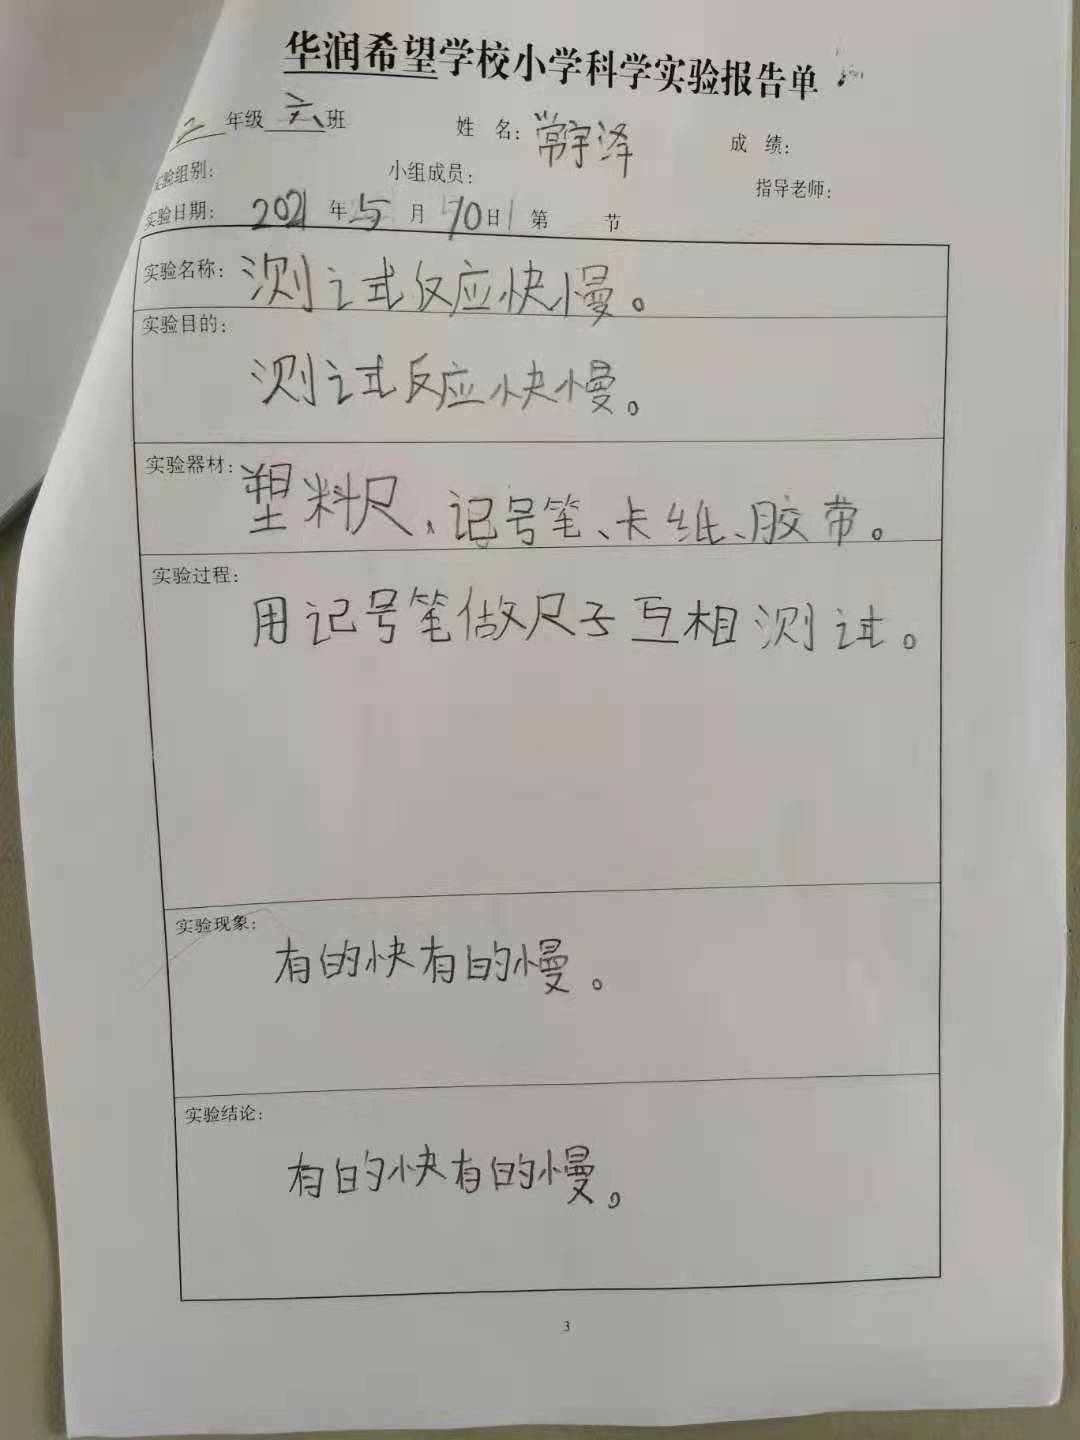 华润希望学校小学科学实验报告单
年级 六 班 姓 名: 常宇泽 成 绩:
实验组别: 小组成员: 指导老师:
实验日期: 2021 年 5 月 10 日 第 节
实验名称: 测试反应快慢。
实验目的:
测试反应快慢。
实验器材: 塑料尺、记号笔、卡纸、胶带。
实验过程:
用记号笔做尺子互相测试。
实验现象:
有的快有的慢。
实验结论:
有的快有的慢。
3